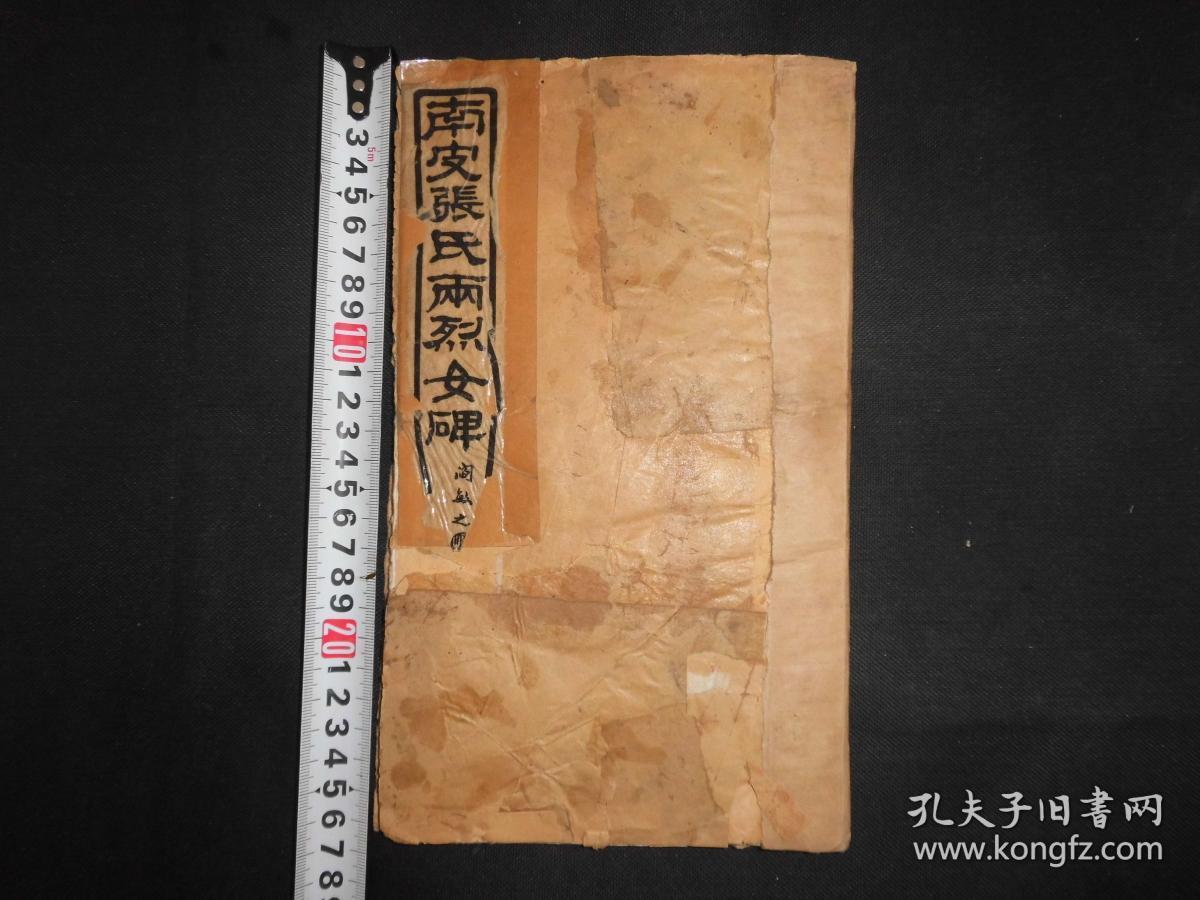 南皮張氏兩烈女碑
阎敏之
5m
3 4 5 6 7 8 9 10 1 2 3 4 5 6 7 8 9 20 1 2 3 4 5 6 7 8
孔夫子旧書网
www.kongfz.com